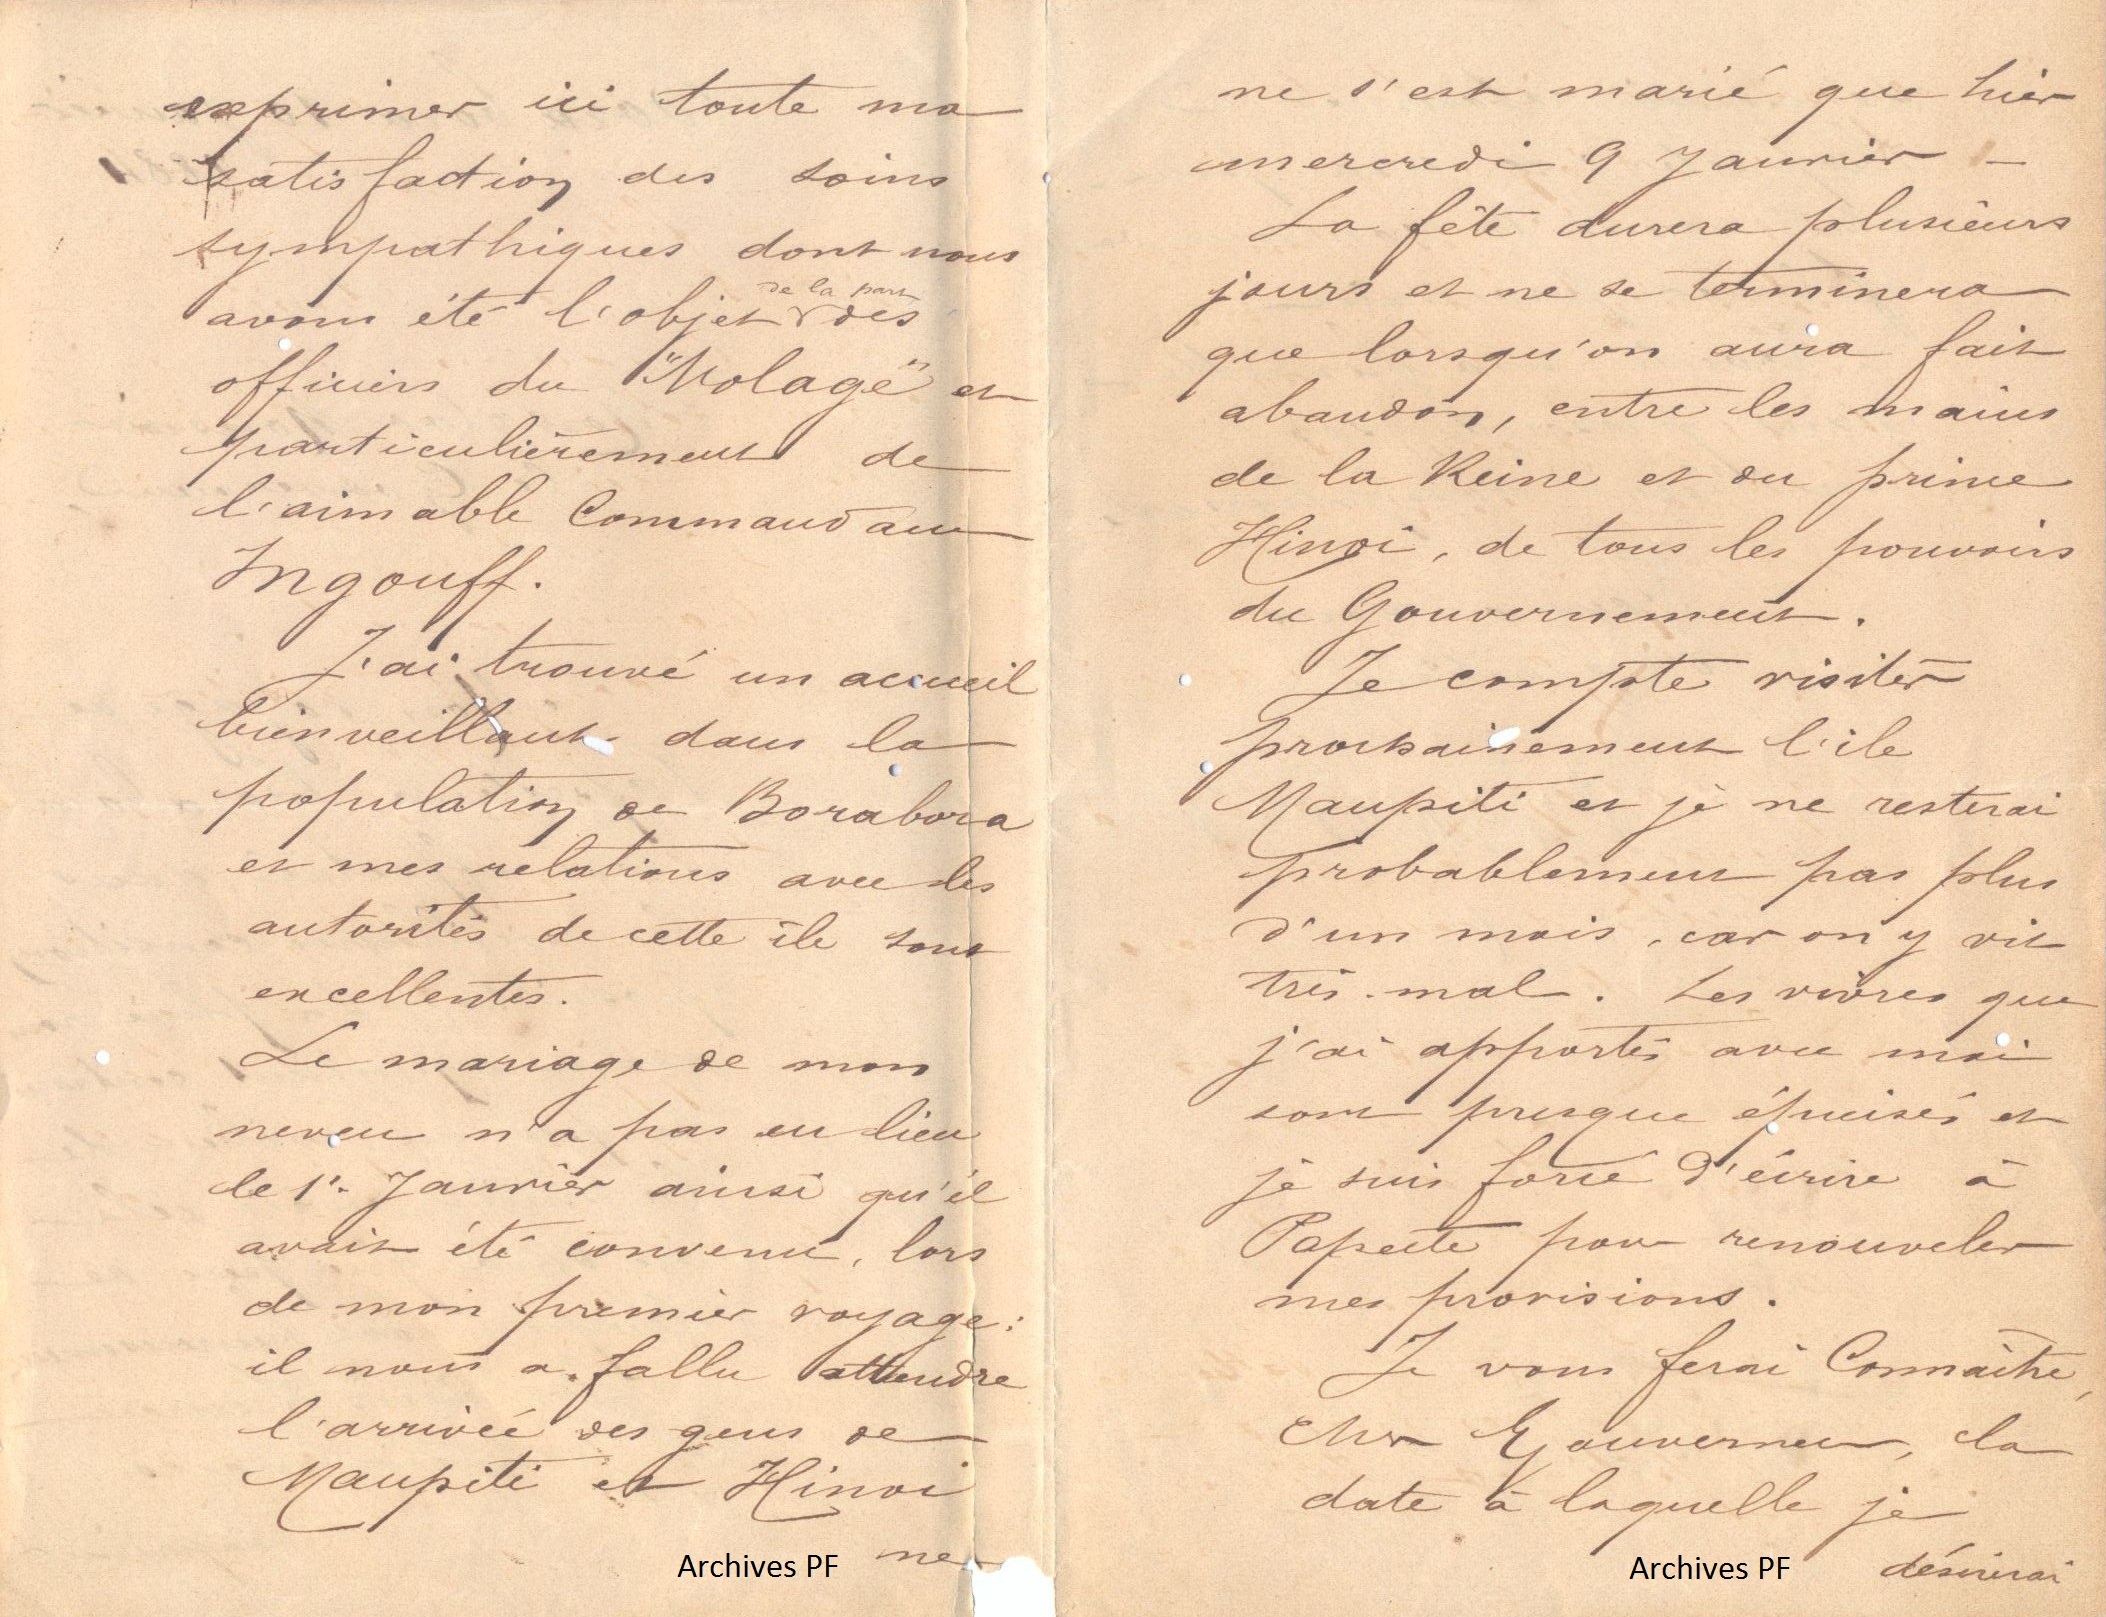 exprimer ici toute ma
satisfaction des soins
sympathiques dont nous
de la part
avons été l'objet des
officiers du "Volage" et
particulièrement de
l'aimable Commandant
Ingouff.
J'ai trouvé un accueil
bienveillant dans la
population de Borabora
et mes relations avec les
autorités de cette île sont
excellentes.
Le mariage de mon
neveu n'a pas eu lieu
le 1r. Janvier ainsi qu'il
avait été convenu, lors
de mon premier voyage:
il nous a fallu attendre
l'arrivée des gens de
Maupiti et Hinoi
ne
Archives PF
ne s'est marié que hier
mercredi 9 Janvier -
La fête durera plusieurs
jours et ne se terminera
que lorsqu'on aura fait
abandon, entre les mains
de la Reine et du prince
Hinoi, de tous les pouvoirs
du Gouvernement.
Je compte visiter
prochainement l'ile
Maupiti et je ne resterai
probablement pas plus
d'un mois, car on y vit
très-mal. Les vivres que
j'ai apportés avec moi
sont presque épuisés et
je suis forcé d'écrire à
Papeete pour renouveler
mes provisions.
Je vous ferai Connaître,
Cher Gouverneur, la
date à laquelle je
désirerai
Archives PF